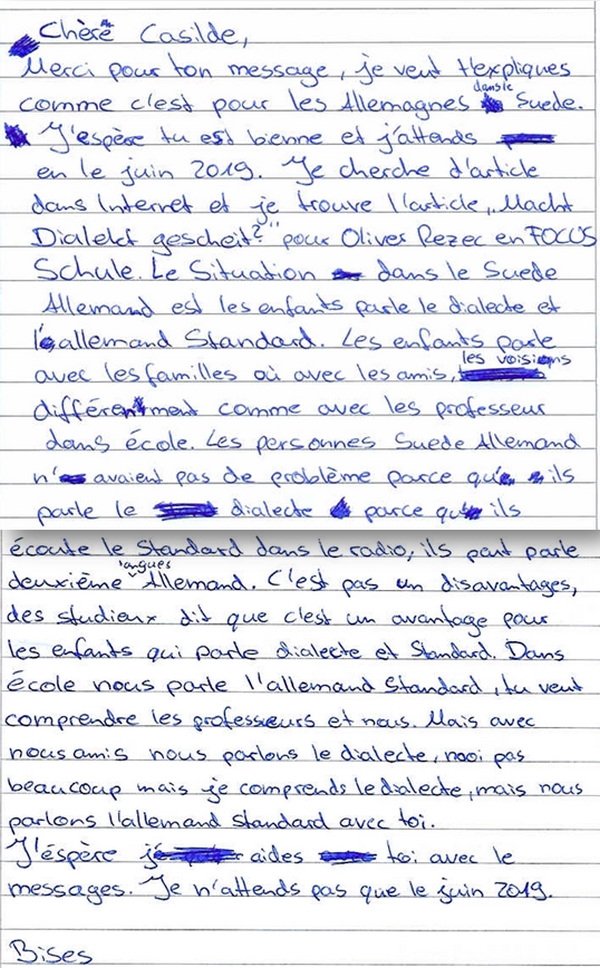 Chère Casilde,
Merci pour ton message, je veut t'expliques
comme c'est pour les Allemagnes dans le Suede.
J'espère tu est bienne et j'attends
en le juin 2019. Je cherche d'article
dans Internet et je trouve l'article „Macht
Dialekt gescheit?" pour Oliver Rezec en FOCUS
Schule. Le Situation dans le Suede
Allemand est les enfants parle le dialecte et
l'allemand Standard. Les enfants parle
avec les familles où avec les amis, les voisions
différentment comme avec les professeur
dans école. Les personnes Suede Allemand
n'avaient pas de problème parce qu'ils
parle le dialecte parce qu'ils
écoute le Standard dans le radio, ils peut parle
deuxième langues Allemand. C'est pas un disavantages,
des studieux dit que c'est un avantage pour
les enfants qui parle dialecte et Standard. Dans
école nous parle l'allemand Standard, tu veut
comprendre les professeurs et nous. Mais avec
nous amis nous parlons le dialecte, pas
beaucoup mais je comprends le dialecte, mais nous
parlons l'allemand Standard avec toi.
J'éspère aides toi avec le
messages. Je n'attends pas que le juin 2019.
Bises